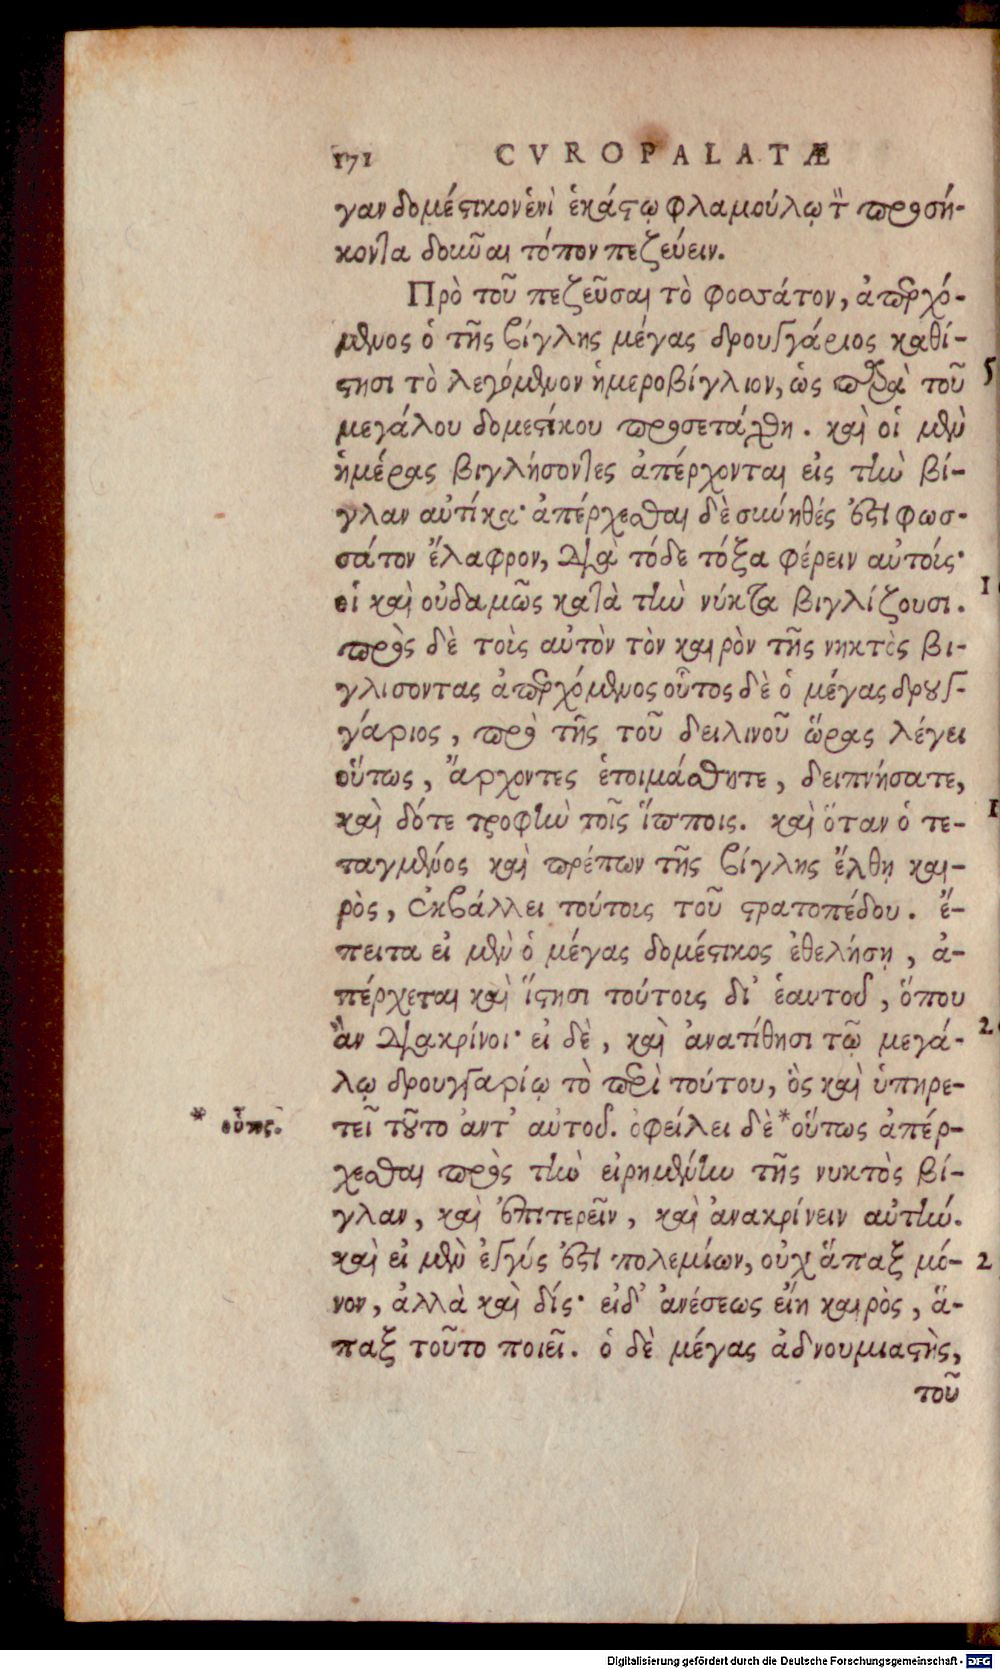 171 CVROPALATÆ
γαν δομέστικον ἑνὶ ἑκάστῳ φλαμούλῳ τ̃ προσή-
κοντα δοκῦαι τόπον πεζεύειν.
Πρὸ τοῦ πεζεῦσαι τὸ φοσσάτον, ἀπερχό-
μενος ὁ τῆς βίγλης μέγας δρουγγάριος καθί-
στησι τὸ λεγόμενον ἡμεροβίγλιον, ὡς παρὰ τοῦ
5
μεγάλου δομεστίκου προσετάχθη. καὶ οἱ μὲν
ἡμέρας βιγλήσοντες ἀπέρχονται εἰς τὴν βί-
γλαν αὐτίκα· ἀπέρχεσθαι δὲ σύνηθές ἐστι φωσ-
σάτον ἔλαφρον, διὰ τόδε τόξα φέρειν αὐτοίς·
οἱ καὶ οὐδαμῶς κατὰ τὴν νύκτα βιγλίζουσι.
πρὸς δὲ τοὶς αὐτὸν τὸν καιρὸν τῆς νηκτὸς βι-
γλισοντας ἀπερχόμενος οὗτος δὲ ὁ μέγας δρουγ-
γάριος, πρὸ τῆς τοῦ δειλινοῦ ὥρας λέγει
οὕτως, ἄρχοντες ἑτοιμάσθητε, δειπνήσατε,
καὶ δότε τροφὴν τοῖς ἵπποις. καὶ ὅταν ὁ τε-
ταγμένος καὶ πρέπων τῆς βίγλης ἔλθῃ και-
ρὸς, ἐκβάλλει τούτοις τοῦ στρατοπέδου. ἔ-
πειτα εἰ μὲν ὁ μέγας δομέστικος ἐθελήσῃ, ἀ-
πέρχεται καὶ ἵστησι τούτοις δι’ ἑαυτοῦ, ὅπου
ἂν διακρίνοι· εἰ δὲ, καὶ ἀνατίθησι τῷ μεγά-
λῳ δρουγγαρίῳ τὸ περὶ τούτου, ὃς καὶ ὑπηρε-
τεῖ τοῦτο ἀντ’ αὐτοῦ. ὀφείλει δὲ *οὕτως ἀπέρ-
* οὗτος.
χεσθαι πρὸς τὴν εἰρημένην τῆς νυκτὸς βί-
γλαν, καὶ ἐπιτερεῖν, καὶ ἀνακρίνειν αὐτήν.
καὶ εἰ μὲν ἐγγύς ἐστι πολεμίων, οὐχ ἅπαξ μό-
2
νον, ἀλλὰ καὶ δίς· εἰδ’ ἀνέσεως εἴη καιρὸς, ἅ-
παξ τοῦτο ποιεῖ. ὁ δὲ μέγας ἀδνουμιαστὴς,
τοῦ
Digitalisierung gefördert durch die Deutsche Forschungsgemeinschaft - DFG